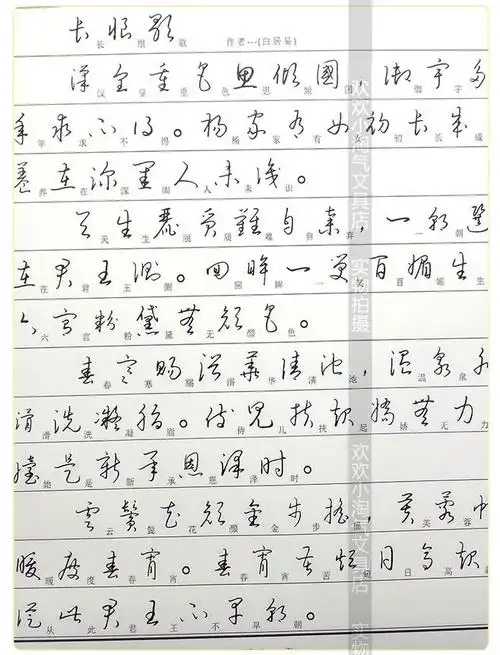 长恨歌 作者---(白居易)
汉皇重色思倾国，御宇多
年求不得。杨家有女初长成
养在深闺人未识。
天生丽质难自弃，一朝选
在君王侧。回眸一笑百媚生
六宫粉黛无颜色
春寒赐浴华清池，温泉水
滑洗凝脂。侍儿扶起娇无力
始是新承恩泽时。
云鬓花颜金步摇，芙蓉巾
暖度春宵。春宵苦短日高起
从此君王不早朝。
欢欢小淘气文具店 实物拍摄
欢欢小淘气文具店 实物